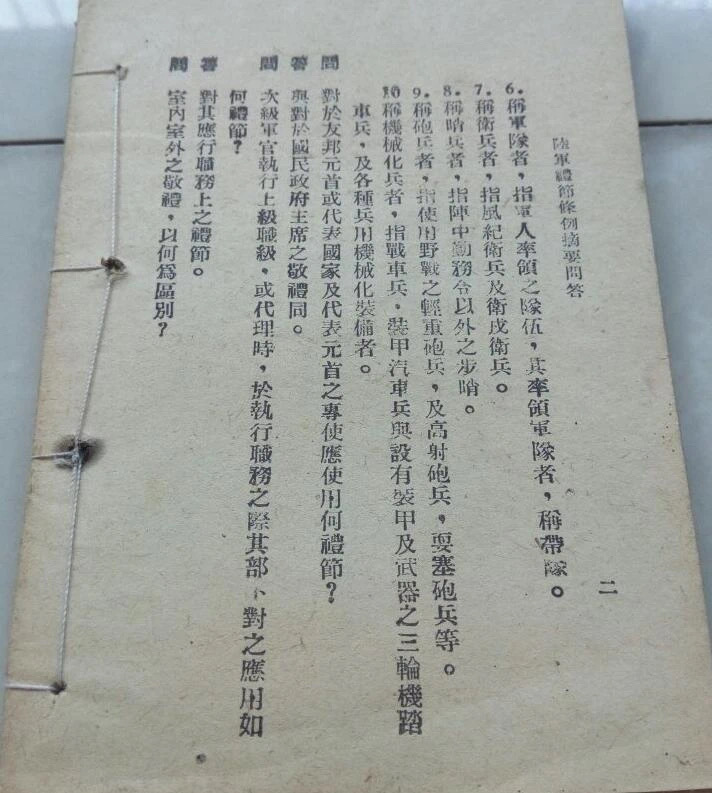 陸軍禮節條例摘要問答
二
6．稱軍隊者，指軍人率領之隊伍，其率領軍隊者，稱帶隊。
7．稱衛兵者，指風紀衛兵及衛戍衛兵。
8．稱哨兵者，指陣中勤務令以外之步哨。
9．稱砲兵者，指使用野戰之輕重砲兵，及高射砲兵，要塞砲兵等。
10稱機械化兵者，指戰車兵，裝甲汽車兵與設有裝甲及武器之三輪機踏
車兵，及各種兵用機械化裝備者。
問　對於友邦元首或代表國家及代表元首之專使應使用何禮節？
答　與對於國民政府主席之敬禮同。
問　次級軍官執行上級職級，或代理時，於執行職務之際其部下對之應用如
何禮節？
答　對其應行職務上之禮節。
問　室內室外之敬禮，以何為區別？